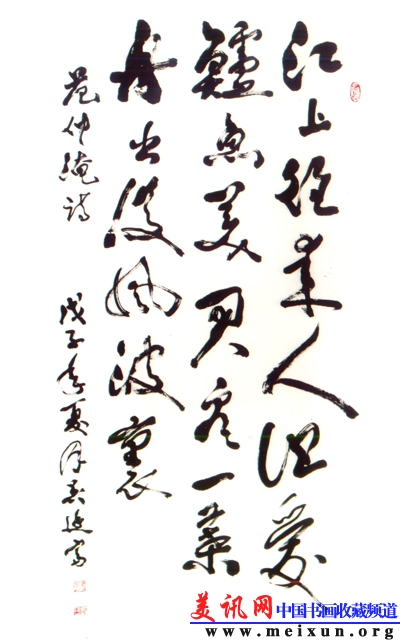 江上往来人但愛
鱸魚美君看一葉
舟出没風波裏
范仲淹詩
戊子年夏
美讯网 中国书画收藏频道
www.meixun.org